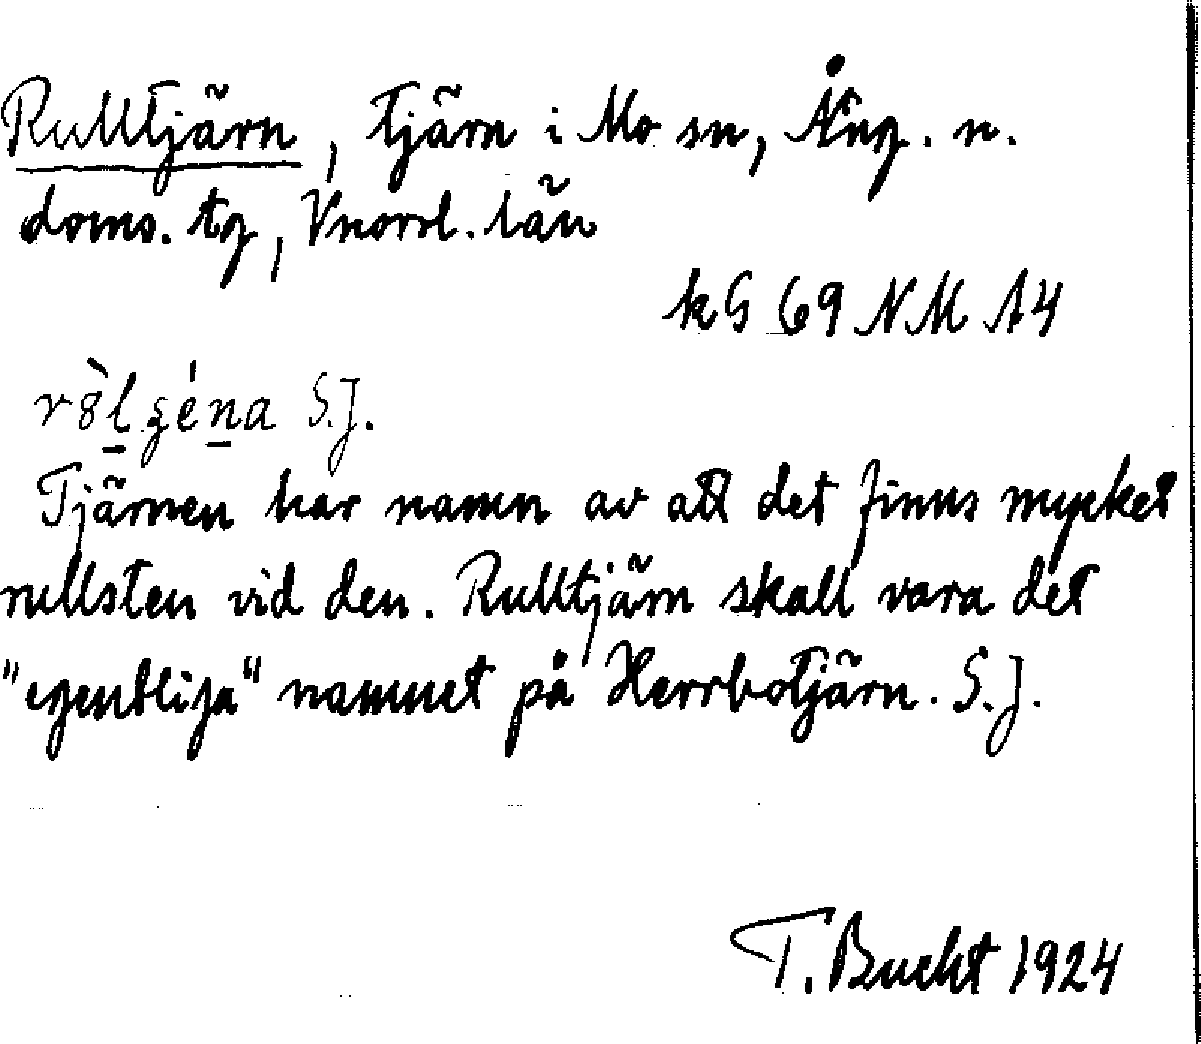 Rulltjärn, tjärn i Mo sn, Ång. n.
doms. tg, Vnorrl. län
kG 69 NM A4
S.J.
Tjärnen har namn av att det finns mycket
rullsten vid den. Rulltjärn skall vara det
"egentliga" namnet på Herrbotjärn. S.J.
T. Bucht 1924